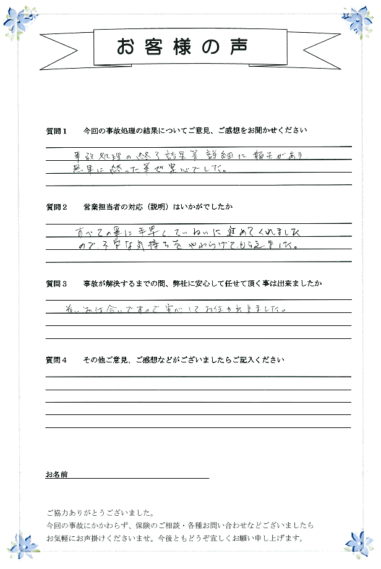 お客様の声
質問1 今回の事故処理の結果についてご意見、ご感想をお聞かせください
事故処理の終了結果等詳細に報告があり
無事に終った事で安心でした。
質問2 営業担当者の対応（説明）はいかがでしたか
すべての事に手早くていねいに進めてくれました
ので不安な気持ちを やわらげてもらえました。
質問3 事故が解決するまでの間、弊社に安心して任せて頂く事は出来ましたか
安心してお任せ出来ました。
質問4 その他ご意見、ご感想などがございましたらご記入ください
お名前
ご協力ありがとうございました。
今回の事故にかかわらず、保険のご相談・各種お問い合わせなどございましたら
お気軽にお声掛けくださいませ。今後ともどうぞ宜しくお願い申し上げます。